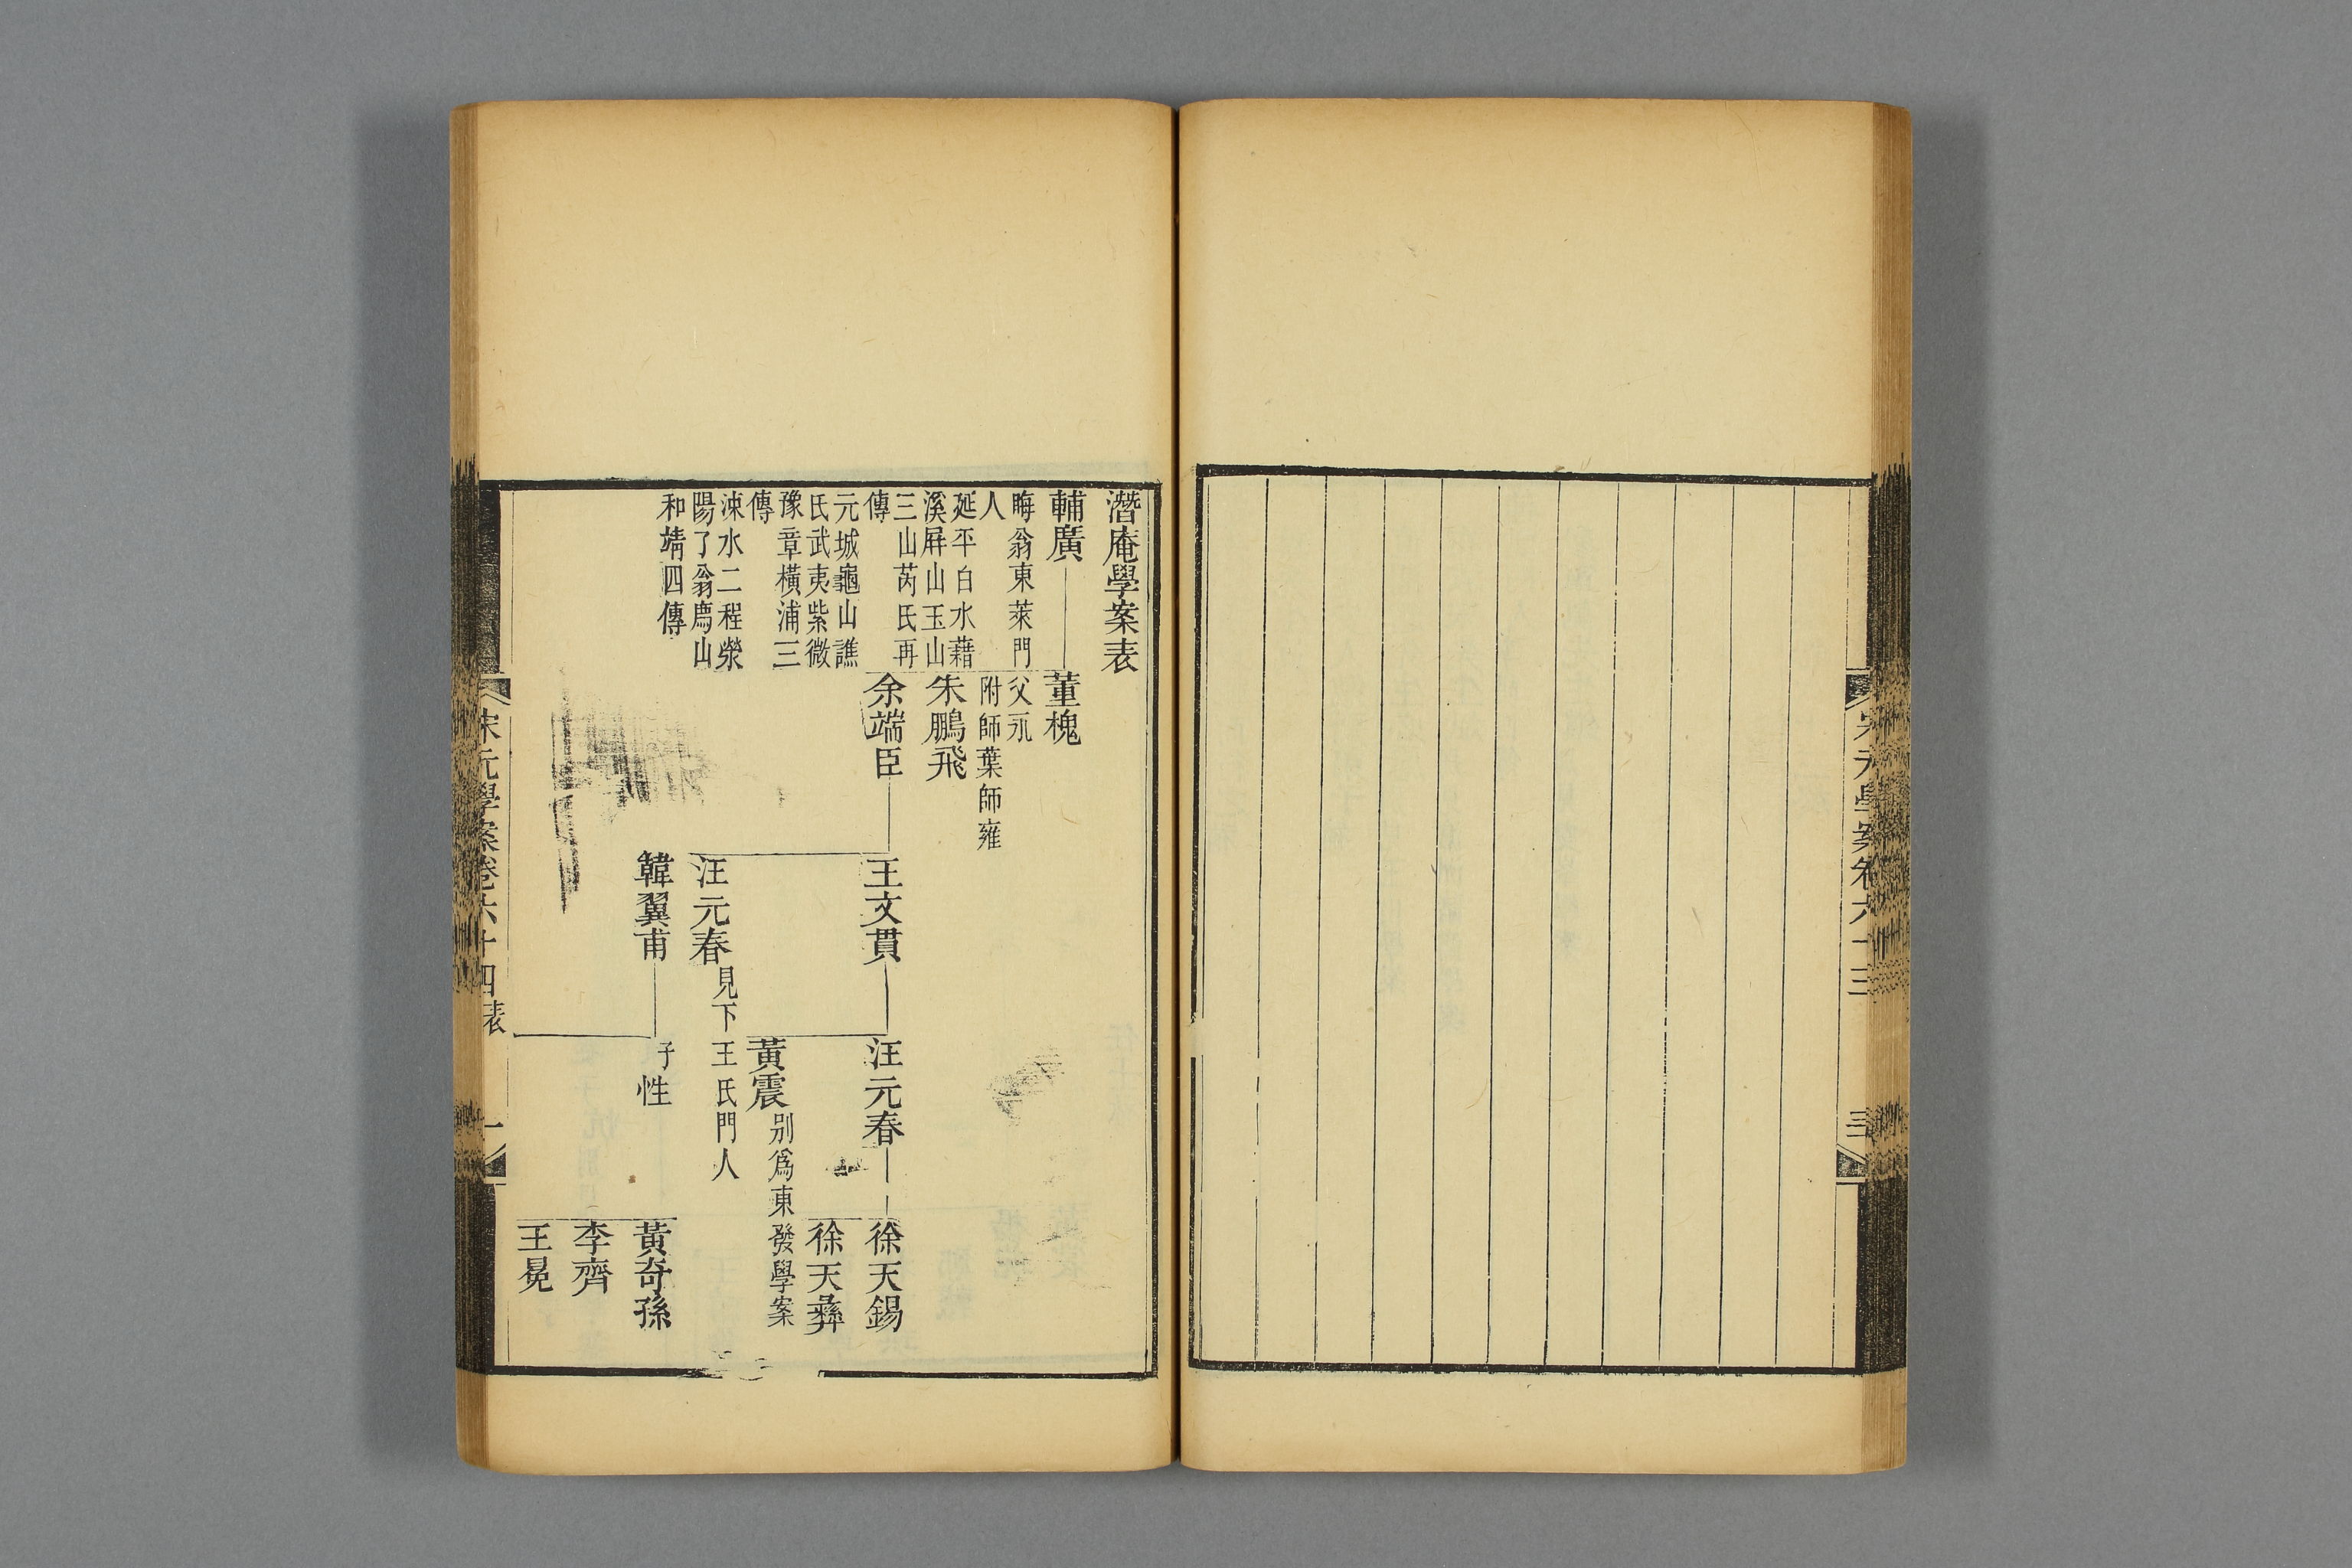 宋元學案卷六十三
三
潛庵學案表
輔廣
晦翁東萊門
人
延平白水藉
溪屏山玉山
三山芮氏再
傳
元城龜山譙
氏武夷紫微
豫章橫浦三
傳
涑水二程滎
陽了翁廌山
和靖四傳
董槐
父永
附師葉師雍
朱鵬飛
余端臣
王文貫
汪元春
徐天錫
徐天彝
黃震
別爲東發學案
汪元春
見下王氏門人
韓翼甫
子性
黃奇孫
李齊
王冕
宋元學案卷六十四表
一